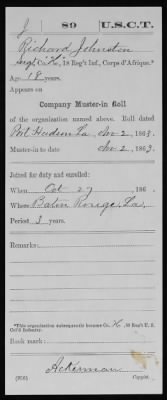 J 89 U.S.C.T.
Richard Johnston
Co. H, 18 Reg't Inf., Corps d'Afrique.*
Age 18 years.
Appears on
Company Muster-in Roll
of the organization named above. Roll dated
Port Hudson La, Nov 2, 1863.
Muster-in to date Nov 2, 1863
Joined for duty and enrolled:
When Oct 27, 186
Where Baton Rouge, La.
Period 3 years.
Remarks:
*This organization subsequently became Co. H, 89 Reg't U. S.
Col'd Infantry.
Book mark:
Ackerman
Copyist.